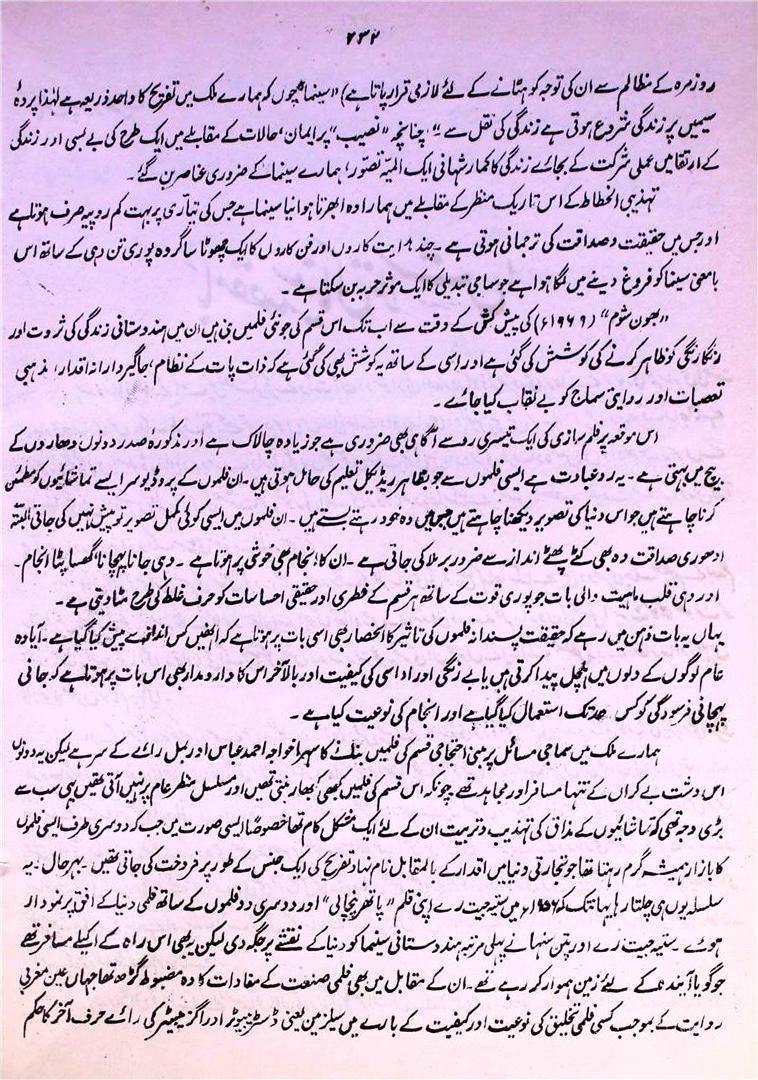 ۲۳۲
روزمرہ کے مظالم سے ان کی توجہ کو ہٹانے کے لئے لازمی قرار پاتا ہے) "سینما چوں کہ ہمارے ملک میں تفریح کا واحد ذریعہ ہے لہٰذا پردۂ
سیمیں پر زندگی شروع ہوتی ہے زندگی کی نقل سے"۔ چنانچہ "نصیب" پر ایمان، حالات کے مقابلے میں ایک طرح کی بے بسی اور زندگی
کے ارتقا میں عملی شرکت کے بجائے زندگی کا کمار شہانی ایک المیہ تصور، ہمارے سینما کے ضروری عناصر بن گئے۔
تہذیبی انحطاط کے اس تاریک منظر کے مقابلے میں ہمارا وہ ابھرتا ہوا نیا سینما ہے جس کی تیاری پر بہت کم روپیہ صرف ہوتا ہے
اور جس میں حقیقت و صداقت کی ترجمانی ہوتی ہے۔ چند ہدایت کاروں اور فن کاروں کا ایک چھوٹا سا گروہ پوری تن دہی کے ساتھ اس
بامعنی سینما کو فروغ دینے میں لگا ہوا ہے جو سماجی تبدیلی کا ایک موثر حربہ بن سکتا ہے۔
"بھون شوم" (۱۹۶۹ء) کی پیش کش کے وقت سے اب تک اس قسم کی جو نئی فلمیں بنی ہیں ان میں ہندوستانی زندگی کی ثروت اور
رنگا رنگی کو ظاہر کرنے کی کوشش کی گئی ہے اور اسی کے ساتھ یہ کوشش بھی کی گئی ہے کہ ذات پات کے نظام، جاگیردارانہ اقدار، مذہبی
تعصبات اور روایتی سماج کو بے نقاب کیا جائے۔
اس موقعہ پر فلم سازی کی ایک تیسری رو سے آگاہی بھی ضروری ہے جو زیادہ چالاک ہے اور مذکورۂ صدر دونوں دھاروں کے
بیچ میں بہتی ہے۔ یہ رو عبارت ہے ایسی فلموں سے جو بظاہر ریڈیکل تعلیم کی حامل ہوتی ہیں۔ ان فلموں کے پروڈیوسر ایسے تماشائیوں کو مطمئن
کرنا چاہتے ہیں جو اس دنیا کی تصویر دیکھنا چاہتے ہیں جس میں وہ خود رہتے بستے ہیں۔ ان فلموں میں ایسی کوئی مکمل تصویر تو پیش نہیں کی جاتی البتہ
ادھوری صداقت وہ بھی کٹے پھٹے انداز سے ضرور برملا کی جاتی ہے۔ ان کا انجام بھی خوشی پر ہوتا ہے۔ وہی جانا پہچانا، گھسا پٹا انجام۔
اور وہی قلب ماہیت والی بات جو پوری قوت کے ساتھ ہر قسم کے فطری اور حقیقی احساسات کو حرف غلط کی طرح مٹا دیتی ہے۔
یہاں یہ بات ذہن میں رہے کہ حقیقت پسندانہ فلموں کی تاثیر کا انحصار بھی اسی بات پر ہوتا ہے کہ انھیں کس انداز سے پیش کیا گیا ہے۔ آیا وہ
عام لوگوں کے دلوں میں ہلچل پیدا کرتی ہیں یا بے رنگی اور اداسی کی کیفیت اور بالآخر اس کا دارومدار بھی اس بات پر ہوتا ہے کہ جانی
پہچانی فرسودگی کو کس حد تک استعمال کیا گیا ہے اور انجام کی نوعیت کیا ہے۔
ہمارے ملک میں سماجی مسائل پر مبنی احتجاجی قسم کی فلمیں بنانے کا سہرا خواجہ احمد عباس اور بمل رائے کے سر ہے لیکن یہ دونوں
اس دشت بے کراں کے تنہا مسافر اور مجاہد تھے چونکہ اس قسم کی فلمیں کبھی کبھار بنتی تھیں اور مسلسل منظر عام پر نہیں آتی تھیں یہی سب سے
بڑی وجہ تھی کہ تماشائیوں کے مذاق کی تہذیب و تربیت ان کے لئے ایک مشکل کام تھا خصوصاً ایسی صورت میں جب کہ دوسری طرف ایسی فلموں
کا بازار ہمیشہ گرم رہتا تھا جو تجارتی دنیا میں اقدار کے بالمقابل نام نہاد تفریح کی ایک جنس کے طور پر فروخت کی جاتی تھیں۔ بہرحال۔ یہ
سلسلہ یوں ہی چلتا رہا یہاں تک کہ ۱۹۵۶ء میں ستیہ جیت رے اپنی فلم "پاتھر پنچالی" اور دوسری دو فلموں کے ساتھ فلمی دنیا کے افق پر نمودار
ہوئے۔ ستیہ جیت رے اور تپن سنہا نے پہلی مرتبہ ہندوستانی سینما کو دنیا کے نقشے پر جگہ دی لیکن یہ بھی اس راہ کے اکیلے مسافر تھے
جو گویا آیندہ کے لئے زمین ہموار کر رہے تھے۔ ان کے مقابل میں بھی فلمی صنعت کے مفادات کا وہ مضبوط گڑھ تھا جہاں عین مغربی
روایت کے بموجب کسی فلمی تخلیق کی نوعیت اور کیفیت کے بارے میں سیلزمین یعنی ڈسٹری بیوٹر اور اگزیبیٹر کی رائے حرف آخر کا حکم